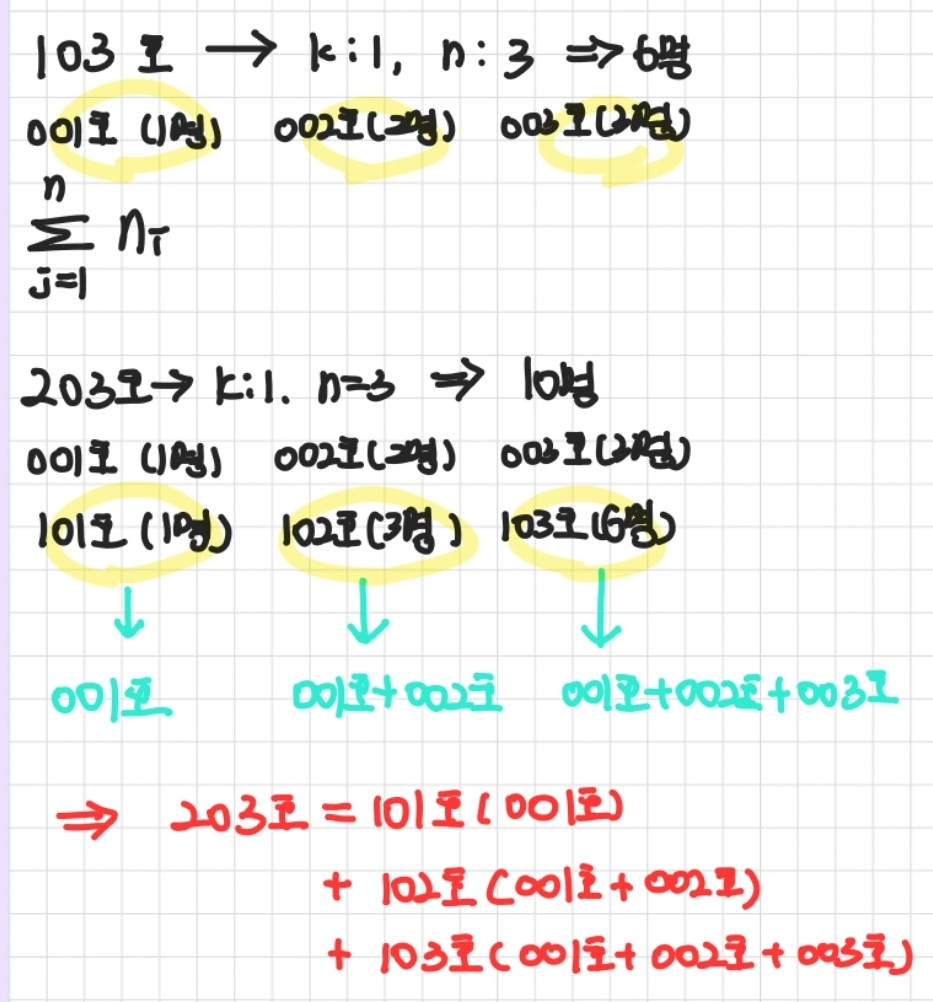 103호 → k:1, n:3 ⇒ 6명
001호 (1명) 002호(2명) 003호(3명)
n
Σ nᵢ
j=1
203호→ k:1. n=3 ⇒ 10명
001호 (1명) 002호(2명) 003호(3명)
101호 (1명) 102호(3명) 103호(6명)
↓ ↓ ↓
001호 001호+002호 001호+002호+003호
⇒ 203호 = 101호(001호)
+ 102호(001호+002호)
+ 103호(001호+002호+003호)